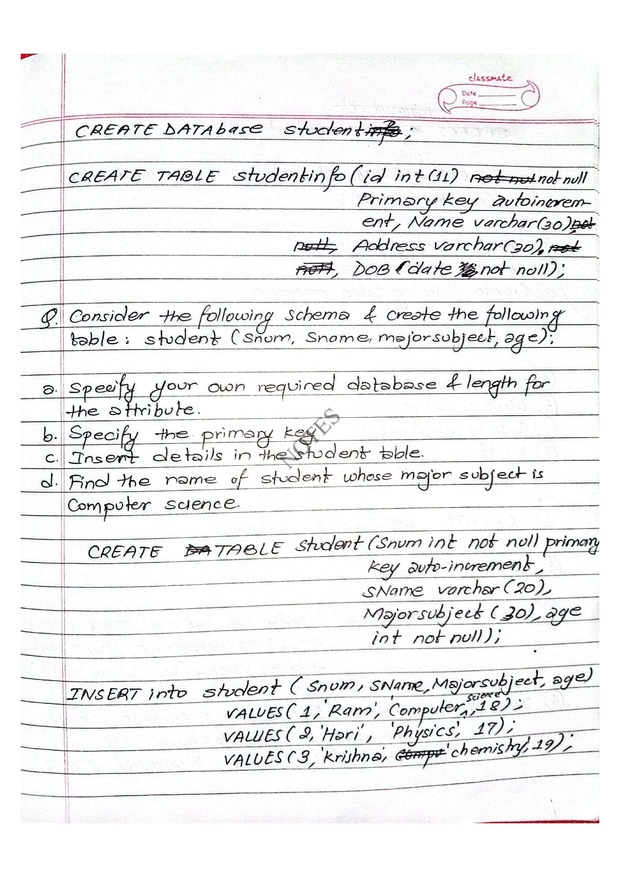 classmate
Date
Page
CREATE DATAbase student2;
CREATE TABLE studentinfo (id int (11) not null
Primary key autoincrem-
ent, Name varchar(30),
Address varchar(30),
, DOB (date not null);
Q. Consider the following schema & create the following
table: student (Snum, Sname, majorsubject, age);
a. Specify your own required database & length for
the attribute.
b. Specify the primary key.
c. Insert details in the student table.
d. Find the name of student whose major subject is
Computer science.
CREATE TABLE student (Snum int not null primary
key auto-increment,
SName varchar (20),
Majorsubject (30), age
int not null);
INSERT into student (Snum, SName, Majorsubject, age)
VALUES (1, 'Ram', Computer science, 18);
VALUES (2, 'Hari', 'Physics', 17);
VALUES (3, 'Krishna', 'chemistry', 19);
NOTES